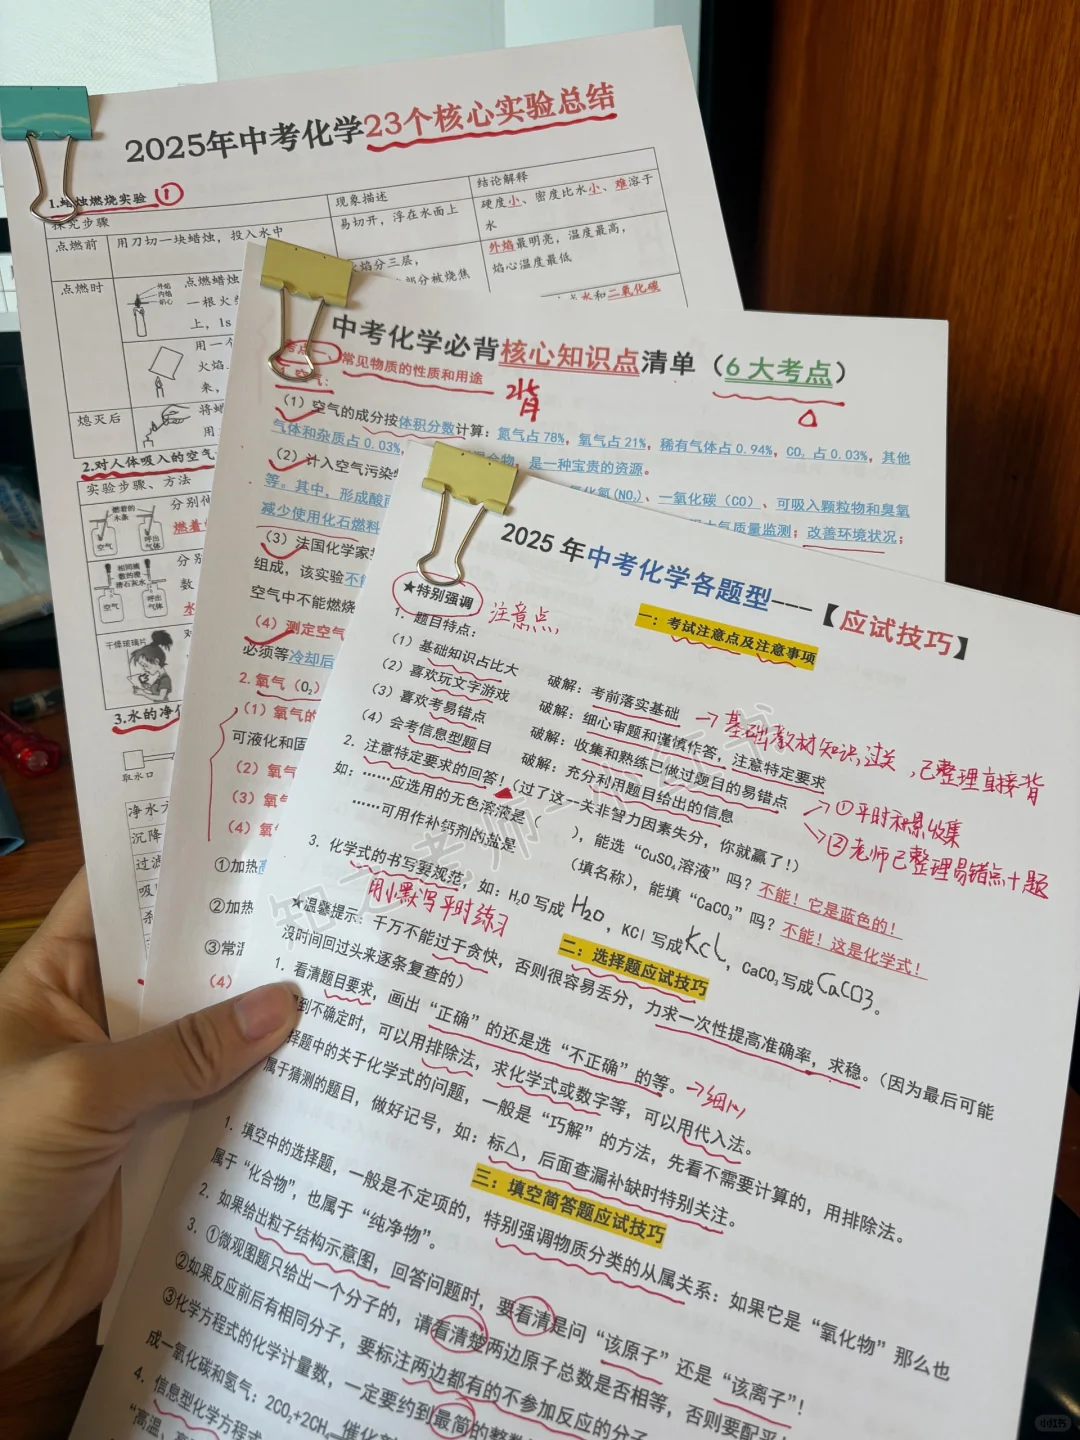 2025年中考化学23个核心实验总结
1.蜡烛燃烧实验 ①
探究步骤
现象描述
结论解释
点燃前
用刀切一块蜡烛，投入水中
易切开，浮在水面上
硬度小、密度比水小、难溶于
水
点燃时
外焰
内焰
焰心
点燃蜡烛
焰分三层，
部分被烧焦
外焰最明亮，温度最高，
焰心温度最低
一根火
上，1s
水和二氧化碳
用一个
火焰
来，
熄灭后
将蜡
用
2.对人体吸入的空气
实验步骤、方法
燃着的
木条
空气
呼出
气体
分别
燃着
相同滴
数的澄
清石灰水
空气
呼出
气体
分别
数
水
干燥玻璃片
对
3.水的净化
取水口
净水方
沉降
过滤
吸
杀
中考化学必背核心知识点清单（6大考点）
常见物质的性质和用途
背
1.空气：
（1）空气的成分按体积分数计算：氮气占78%，氧气占21%，稀有气体占0.94%，CO₂ 占0.03%，其他
气体和杂质占0.03%，
是一种宝贵的资源。
（2）计入空气污染
（NO₂）、一氧化碳（CO）、可吸入颗粒物和臭氧
等。其中，形成酸雨
减少使用化石燃料
大气质量监测；改善环境状况；
（3）法国化学家
组成，该实验不能
空气中不能燃烧
（4）测定空气
必须等冷却后
2.氧气（O₂）
（1）氧气的
可液化和固
（2）氧气
（3）氧气
（4）氧
①加热
②加热
③常温
（4）
2025 年中考化学各题型---【应试技巧】
★特别强调
注意点，
一：考试注意点及注意事项
1. 题目特点：
（1）基础知识占比大
破解：考前落实基础
→基础教材知识过关，已整理直接背
（2）喜欢玩文字游戏
破解：细心审题和谨慎作答，注意特定要求
（3）喜欢考易错点
破解：收集和熟练已做过题目的易错点
→①平时积累收集
（4）会考信息型题目
破解：充分利用题目给出的信息
②老师已整理易错点+题
2. 注意特定要求的回答！（过了这一关非智力因素失分，你就赢了！）
如：……应选用的无色溶液是（ ），能选“CuSO₄溶液”吗？不能！它是蓝色的！
……可用作补钙剂的盐是 （填名称），能填“CaCO₃”吗？不能！这是化学式！
3. 化学式的书写要规范，如：H₂O 写成 H₂o ，KCl 写成 Kcl，CaCO₃ 写成 CaCO3。
用小黑写平时练习
★温馨提示：千万不能过于贪快，否则很容易丢分，力求一次性提高准确率，求稳。（因为最后可能
没时间回过头来逐条复查的）
二：选择题应试技巧
1. 看清题目要求，画出“正确”的还是选“不正确”的等。→细心
到不确定时，可以用排除法，求化学式或数字等，可以用代入法。
择题中的关于化学式的问题，一般是“巧解”的方法，先看不需要计算的，用排除法。
属于猜测的题目，做好记号，如：标△，后面查漏补缺时特别关注。
三：填空简答题应试技巧
1. 填空中的选择题，一般是不定项的，特别强调物质分类的从属关系：如果它是“氧化物”那么也
属于“化合物”，也属于“纯净物”。
2. 如果给出粒子结构示意图，回答问题时，要看清是问“该原子”还是“该离子”！
3. ①微观图题只给出一个分子的，请看清楚两边原子总数是否相等，否则要配平
②如果反应前后有相同分子，要标注两边都有的不参加反应的分子
③化学方程式的化学计量数，一定要约到最简的整数
成一氧化碳和氢气：2CO₂+2CH₄ 催化剂
4. 信息型化学方程式
“高温、
知之老师-小红书
小红书